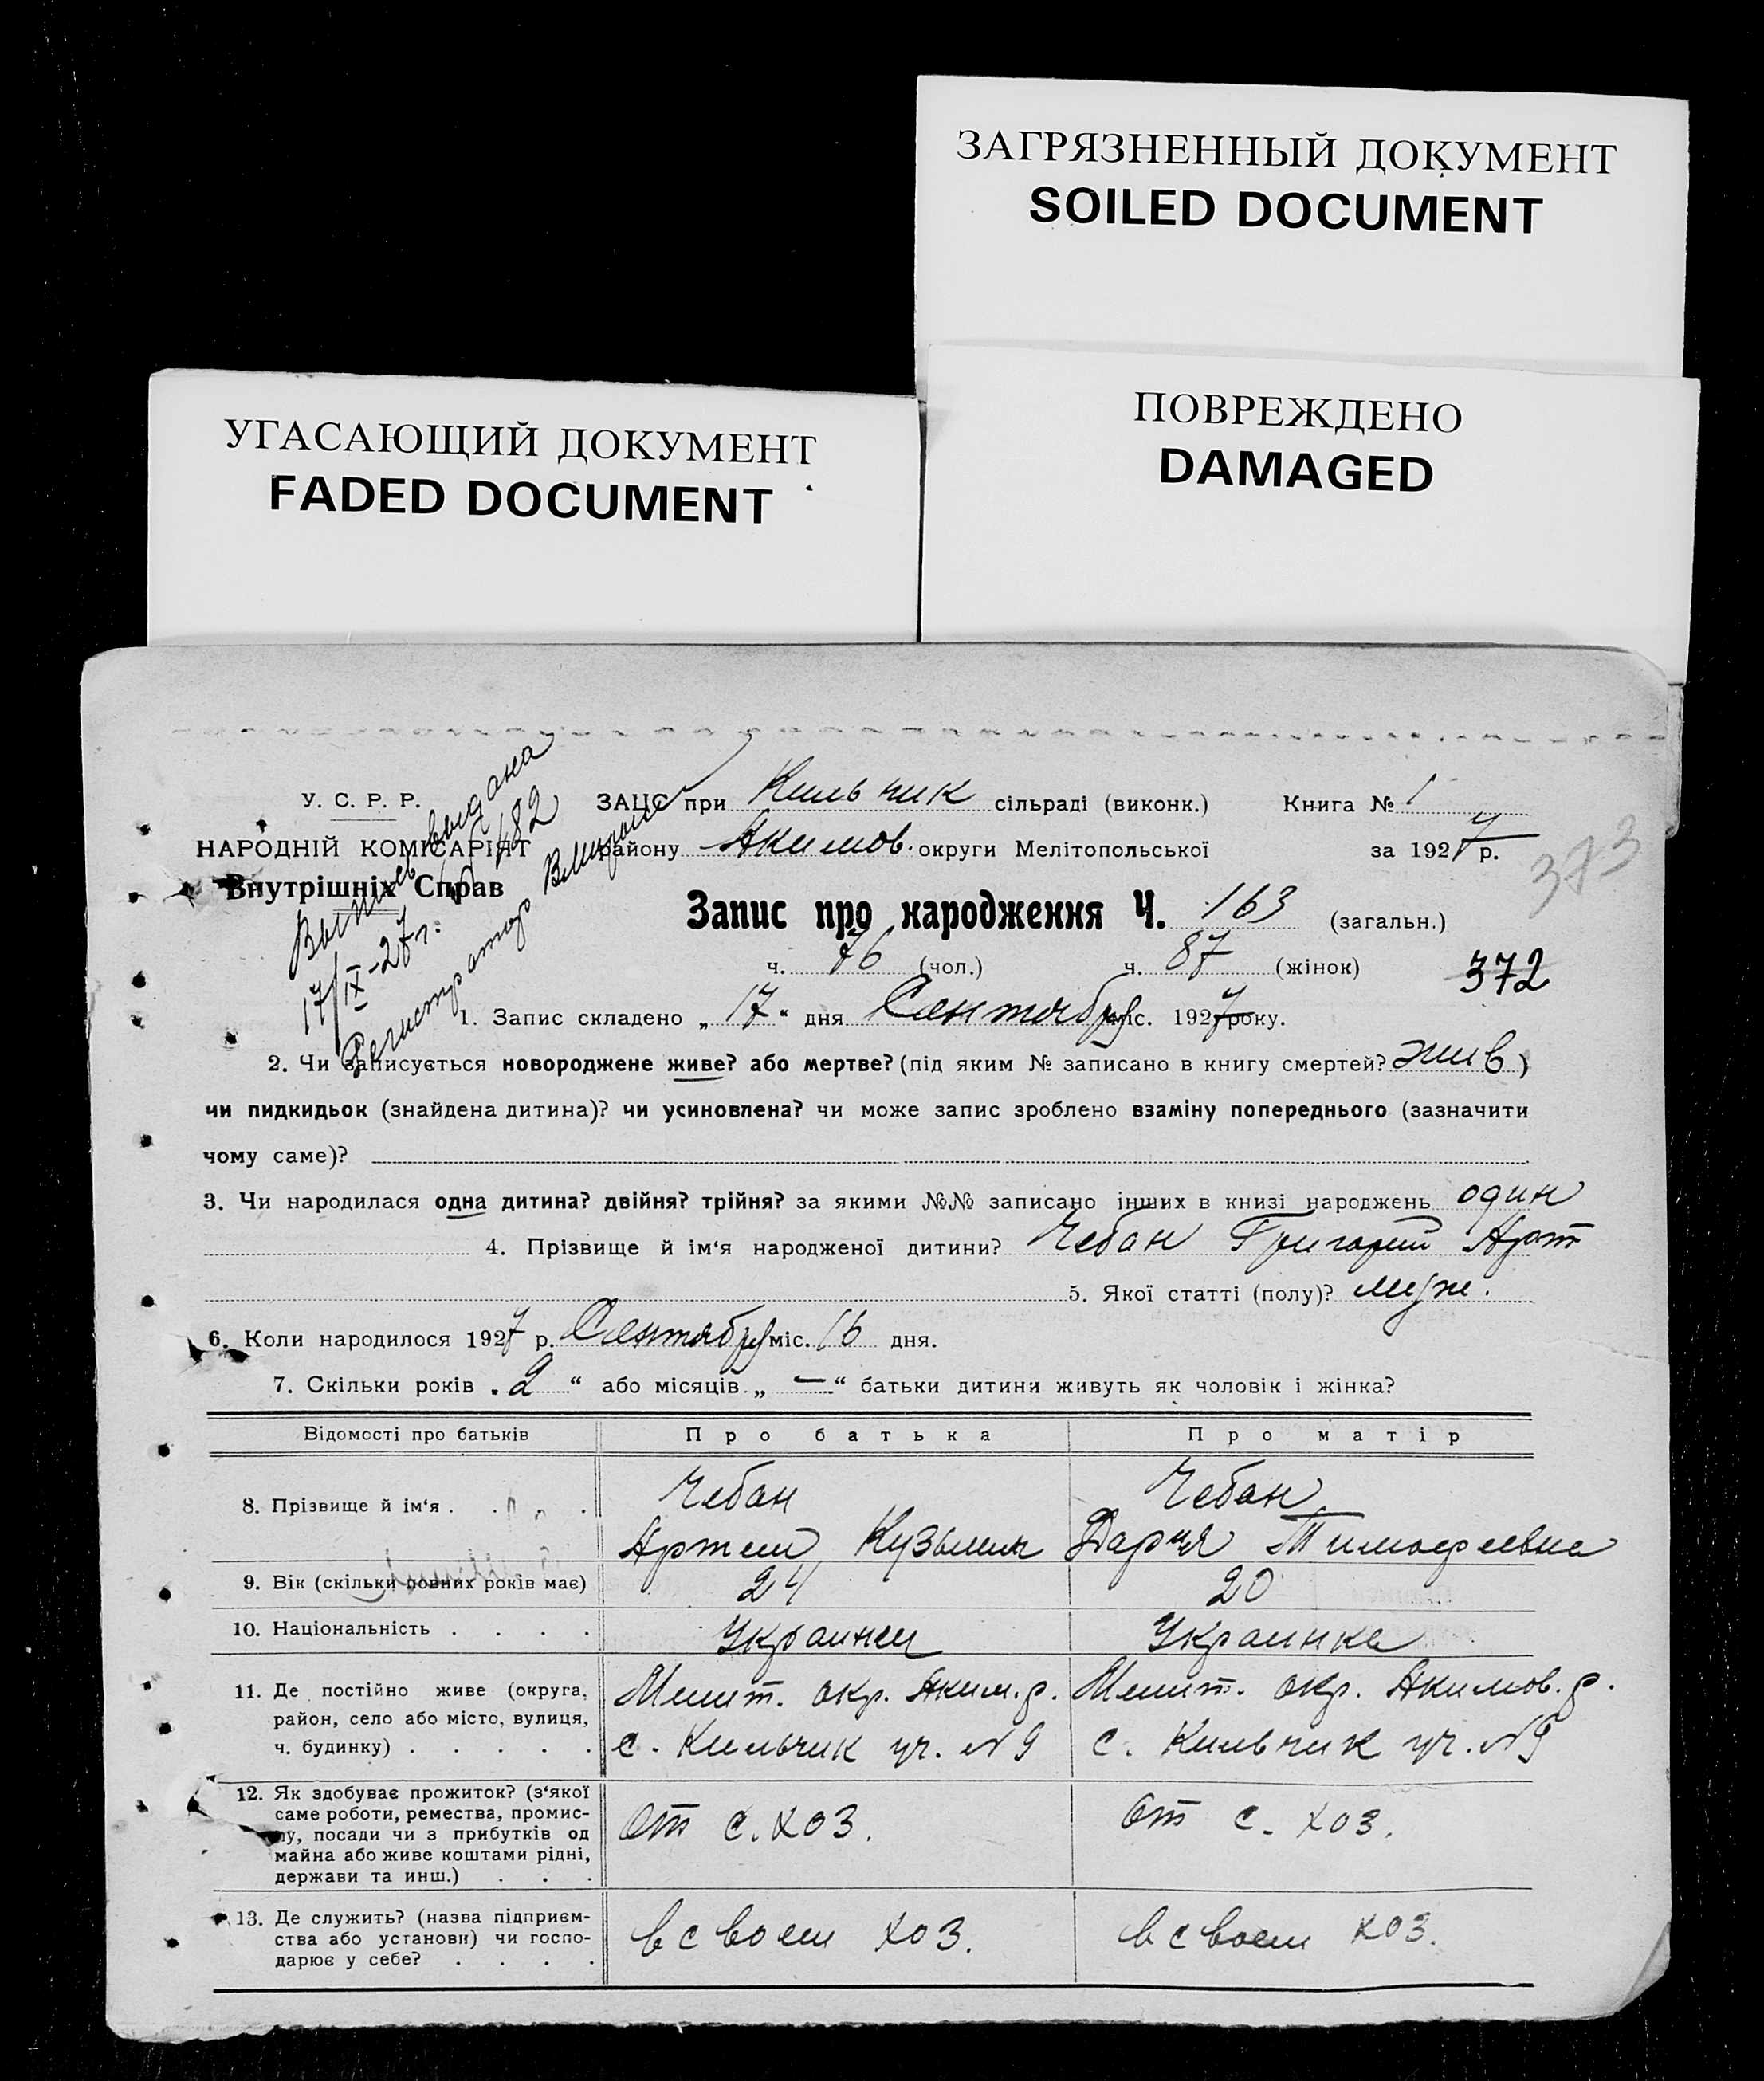 ЗАГРЯЗНЕННЫЙ ДОКУМЕНТ
SOILED DOCUMENT
УГАСАЮЩИЙ ДОКУМЕНТ
FADED DOCUMENT
ПОВРЕЖДЕНО
DAMAGED
У. С. Р. Р.
НАРОДНІЙ КОМІСАРІЯТ
Внутрішніх Справ
Выпись выдана
17/IX-27 г. № 482
Регистратор
ЗАЦС при Кильчик сільраді (виконк.) Книга № 1
району Акимов. округи Мелітопольської за 1927 р.
373
Запис про народження Ч. 163 (загальн.)
ч. 76 (чол.) ч. 87 (жінок)
372
1. Запис складено „ 17 “ дня Сентября міс. 1927 року.
2. Чи записується новороджене живе? або мертве? (під яким № записано в книгу смертей? жив )
чи пидкидьок (знайдена дитина)? чи усиновлена? чи може запис зроблено взаміну попереднього (зазначити
чому саме)?
3. Чи народилася одна дитина? двійня? трійня? за якими №№ записано інших в книзі народжень один
4. Прізвище й ім‘я народженої дитини? Чебан Григорий Арт
5. Якої статті (полу)? муж.
6. Коли народилося 1927 р. Сентября міс. 16 дня.
7. Скільки років „ 2 “ або місяців „ — “ батьки дитини живуть як чоловік і жінка?
Відомості про батьків Про батька Про матір
8. Прізвище й ім‘я . . . . Чебан Чебан
Артем Кузьмич Дария Тимофеевна
9. Вік (скільки ровних років має) 24 20
10. Національність . . . . Украинец Украинка
11. Де постійно живе (округа, Мелит. окр. Аким. р. Мелит. окр. Акимов. р.
район, село або місто, вулиця,
ч. будинку) . . . . . с. Кильчик уч. №9 с. Кильчик уч. №9
12. Як здобуває прожиток? (з‘якої
саме роботи, ремества, промис-
лу, посади чи з прибутків од От с. хоз. От с. хоз.
майна або живе коштами рідні,
держави та инш.) . . .
13. Де служить? (назва підприєм-
ства або установи) чи госпо- в своем хоз. в своем хоз.
дарює у себе? . . . .